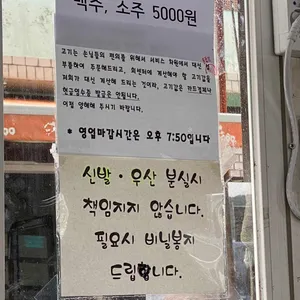 맥주, 소주 5000원
고기는 손님들의 편의를 위해서 서비스 차원에서 대신
부릅하여 주문해드리고, 회센터에 계산해야 할 고기값을
저희가 대신 계산해 드리는 것이며, 고기값은 카드결제나
현금영수증 발급은 안됩니다.
이점 양해해 주시기 바랍니다.
* 영업마감시간은 오후 7:50입니다
신발 · 우산 분실시
책임지지 않습니다.
필요시 비닐봉지
드립니다.